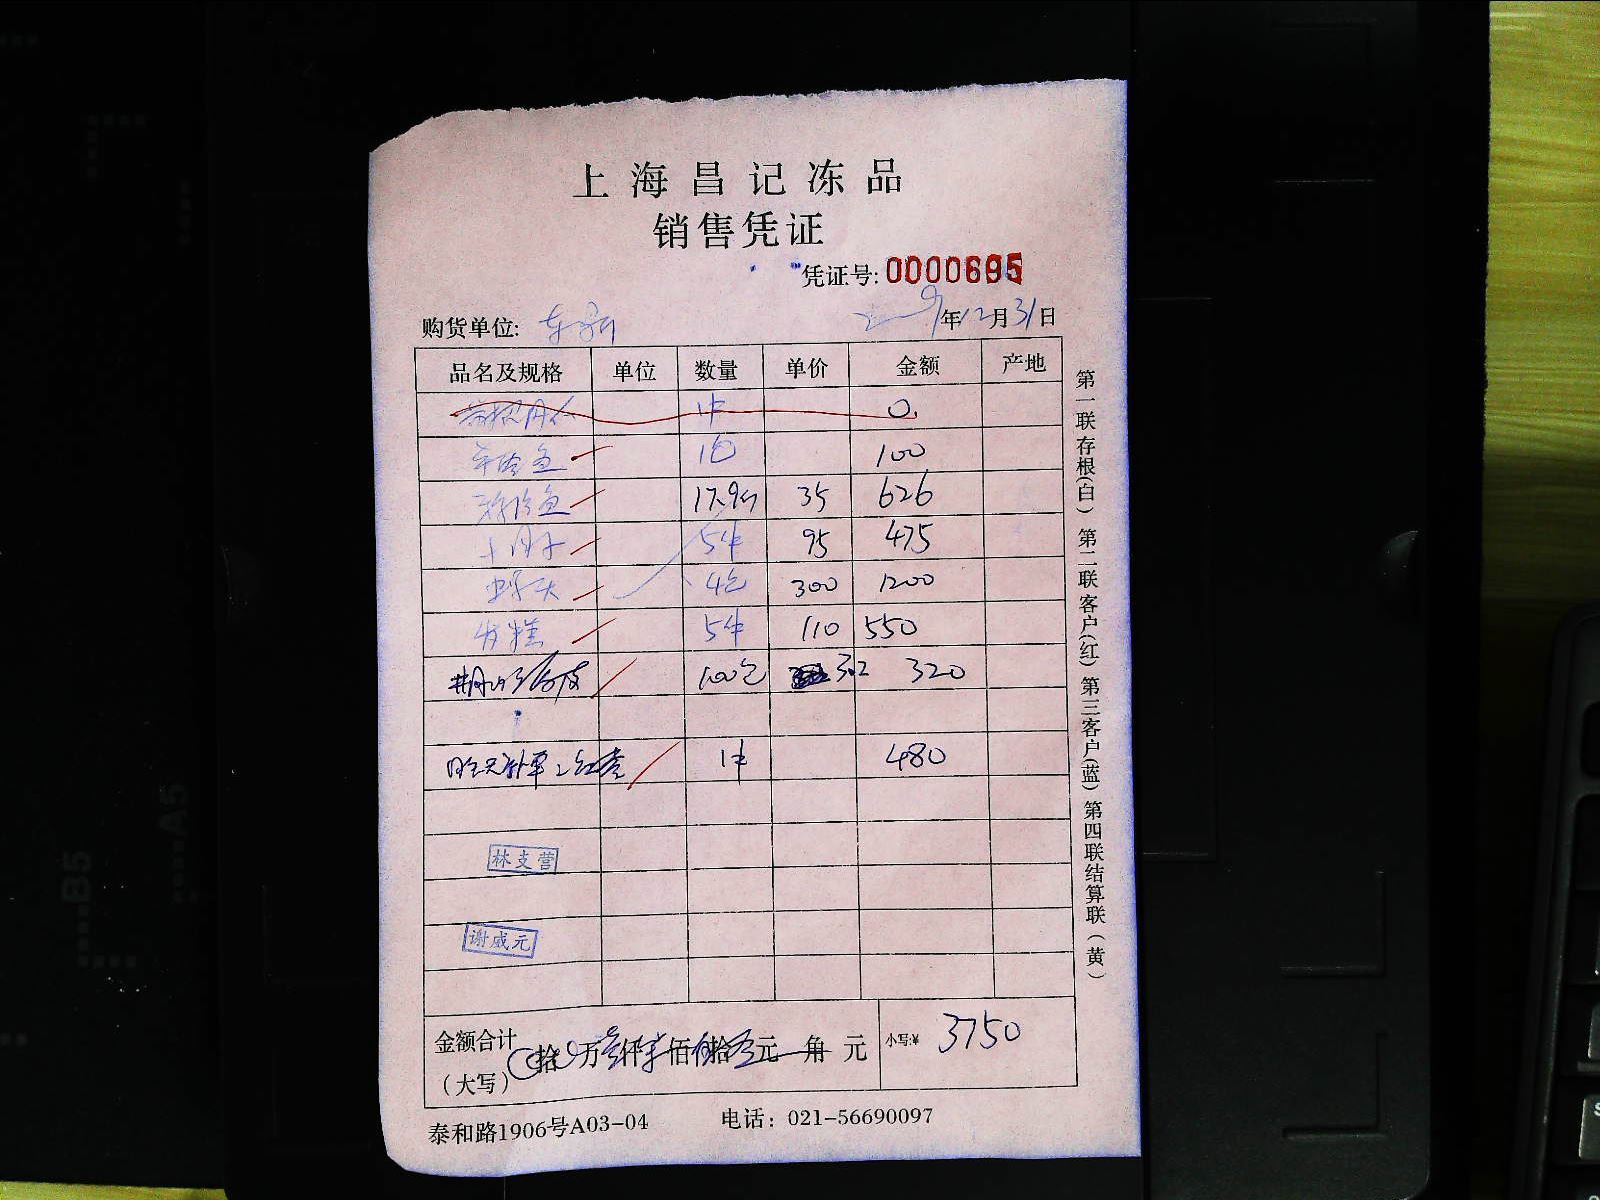 上海昌记冻品
销售凭证
凭证号: 0000695
购货单位: 年12月31日
品名及规格 单位 数量 单价 金额 产地
1件 0.
1包 100
17.9斤 35 626
5件 95 475
虾 4包 300 1200
发糕 5件 110 550
100包 3.2 320
1件 480
林支营
谢威元
金额合计(大写) 拾 万 仟 佰 拾 元 角 元 小写:¥ 3750
泰和路1906号A03-04 电话: 021-56690097
第一联存根(白) 第二联客户(红) 第三客户(蓝) 第四联结算联(黄)
B5
A5